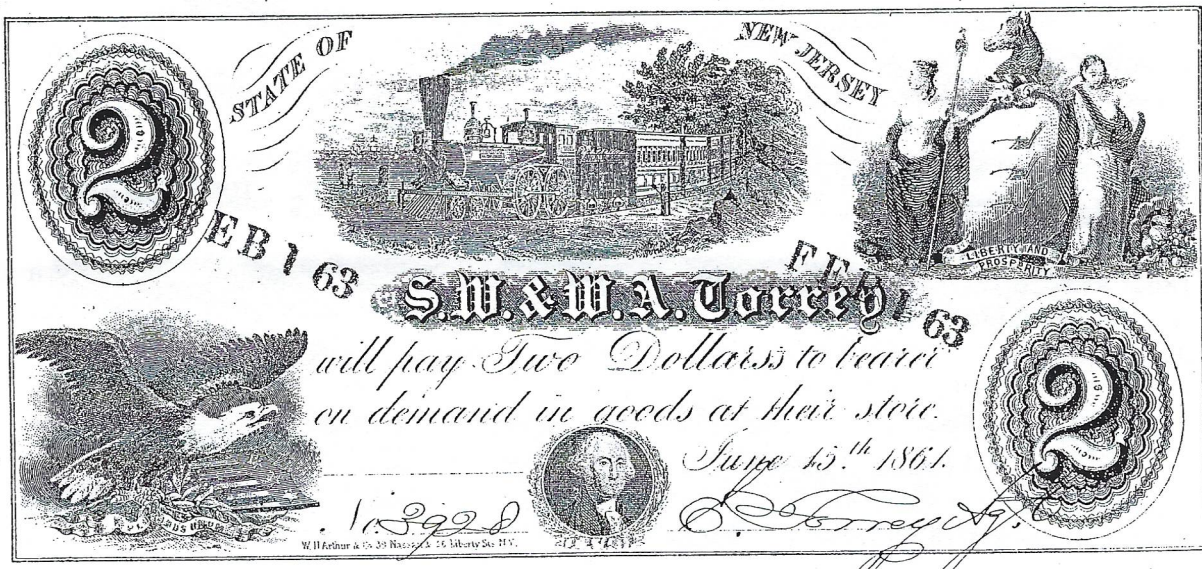 STATE OF NEW JERSEY
2
2
LIBERTY AND
PROSPERITY
EB 1 63
FEB 1 63
S.W. & W.A. Torrey
will pay Two Dollarss to bearer
on demand in goods at their store.
June 15.th 1861.
No. 3928
Torrey Agt.
W. H. Arthur & Co. 39 Nassau & 56 Liberty Sts. N.Y.